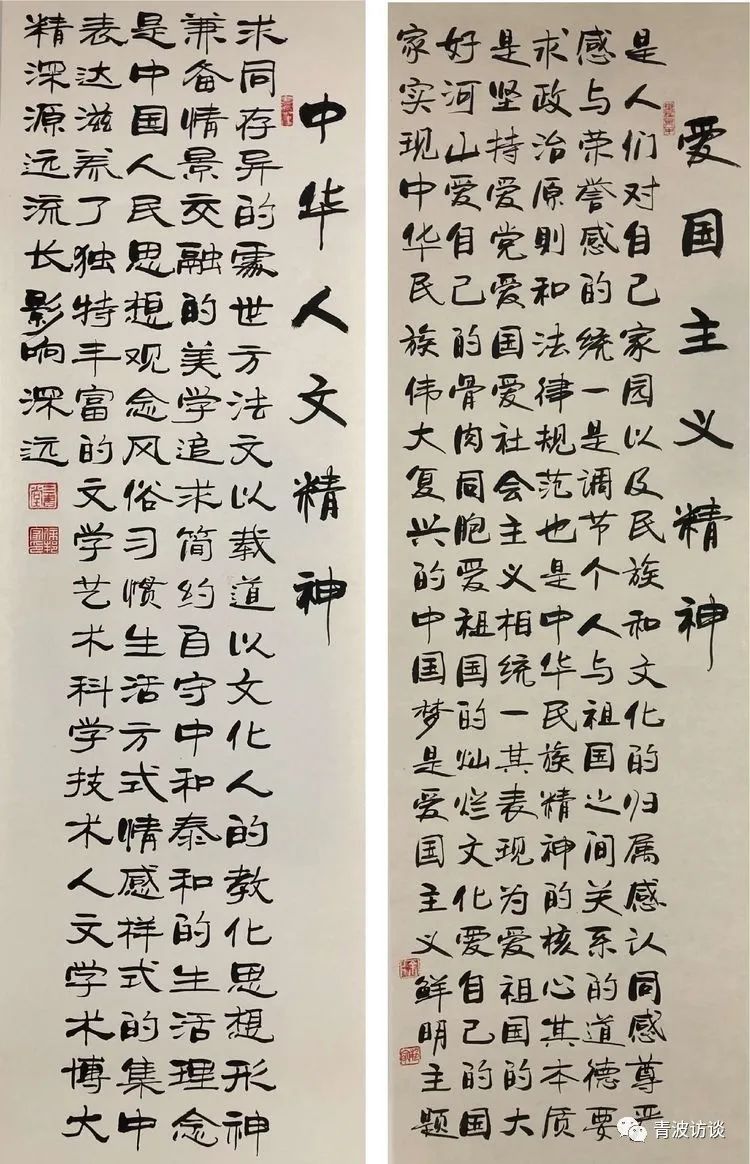 爱国主义精神
是人们对自己家园以及民族和文化的归属感认同感尊严
感与荣誉感的统一是调节个人与祖国之间关系的道德要
求政治原则和法律规范也是中华民族精神的核心其本质
是坚持爱党爱国爱社会主义相统一其表现为爱祖国的大
好河山爱自己的骨肉同胞爱祖国的灿烂文化爱自己的国
家实现中华民族伟大复兴的中国梦是爱国主义鲜明主题
中华人文精神
求同存异的處世方法文以载道以文化人的教化思想形神
兼备情景交融的美学追求简约自守中和泰和的生活理念
是中国人民思想观念风俗习惯生活方式情感样式的集中
表达滋养了独特丰富的文学艺术科学技术人文学术博大
精深源远流长影响深远
青波访谈